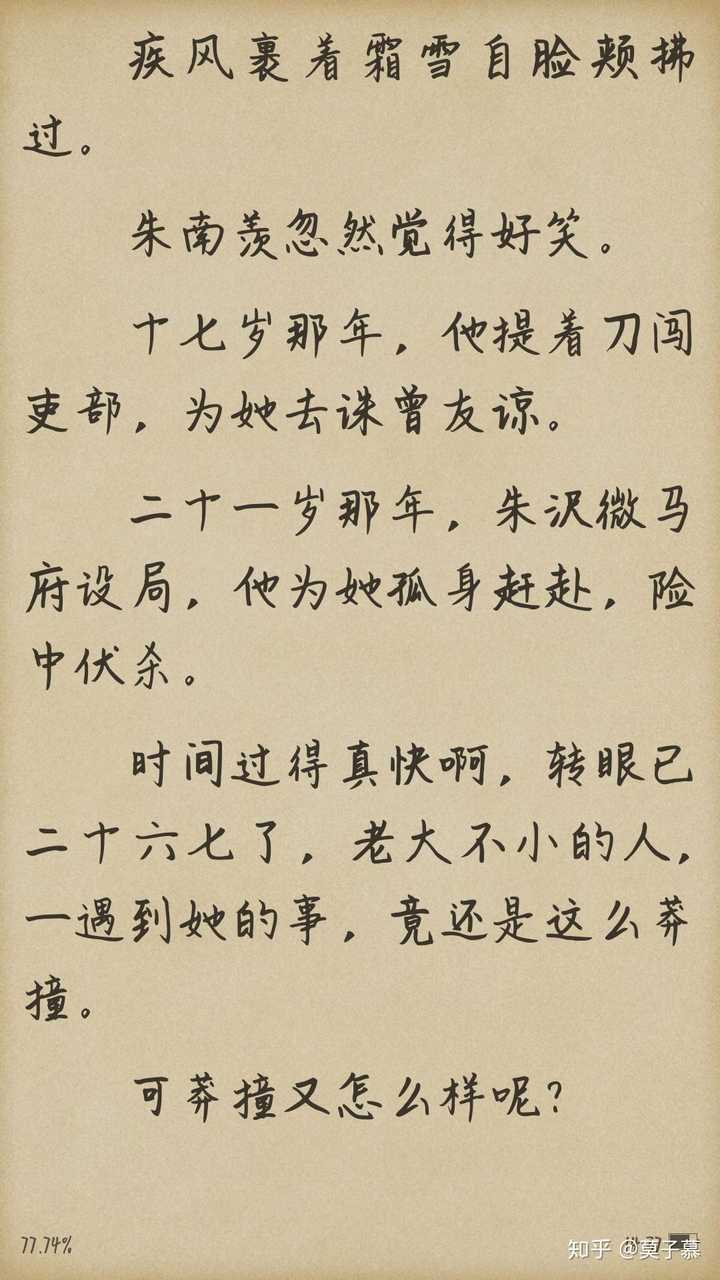 疾风裹着霜雪自脸颊拂
过。
朱南羡忽然觉得好笑。
十七岁那年，他提着刀闯
吏部，为她去诛曾友谅。
二十一岁那年，朱沢微马
府设局，他为她孤身赶赴，险
中伏杀。
时间过得真快啊，转眼已
二十六七了，老大不小的人，
一遇到她的事，竟还是这么莽
撞。
可莽撞又怎么样呢？
77.74%
知乎 @莫子慕